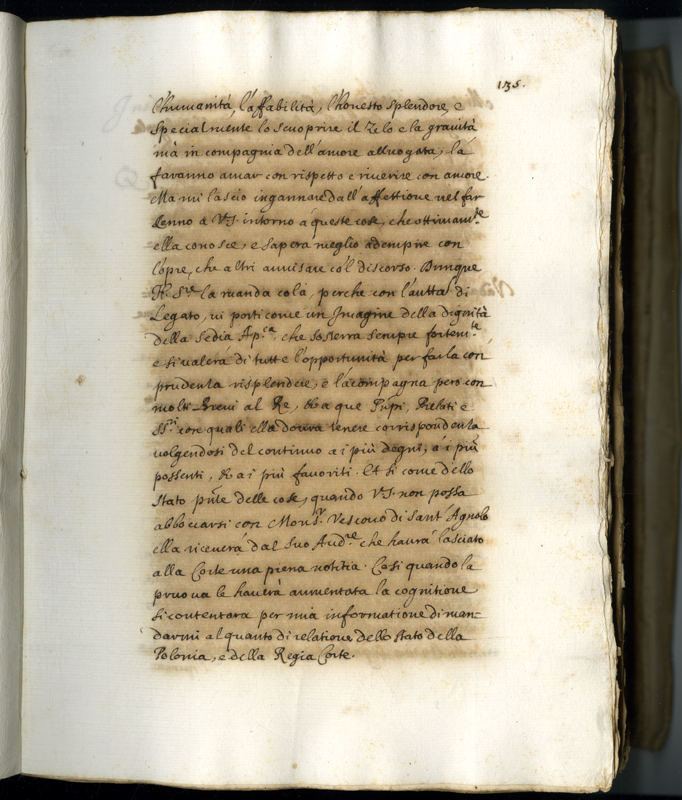 135.
l'humanità, l'affabilità, l'honesto splendore, e
specialmente lo scuoprire il zelo e la gravità
mà in compagnia dell'amore all'vogata, la
faranno amar con rispetto e riverire con amore.
Ma mi lascio ingannare dall'affettione nel far
cenno à V.S. intorno a queste cose, che ottimam.te
ella conosce, e saperà meglio adempire con
l'opre, che altri avvisare co'l discorso. Dunque
N. S.re la manda colà, perche con l'autta' di
Legato, vi porti come un Imagine della dignità
della Sedia Ap.ca, che sosterrà sempre fortem.te
e si valerà di tutte l'opportunità per farla con
prudenza risplendere, e l'acompagna però con
molti Brevi al Re, & a que Pnpi, Prelati e
SS.ri con quali ella dovrà tenere corrispondenza
volgendosi del continuo a i più degni, a i più
possenti, & a i più favoriti. Et si come dello
stato pnte delle cose, quando V.S. non possa
abboccarsi con Mons.r Vescovo di Sant'Agnolo
ella riceverà dal suo Aud.re che havrà lasciato
alla Corte una piena notitia. Così quando la
pruova le haverà aumentata la cognitione
si contentarà per mia informatione di man-
darmi alquanto di relatione dello stato della
Polonia, e della Regia Corte.